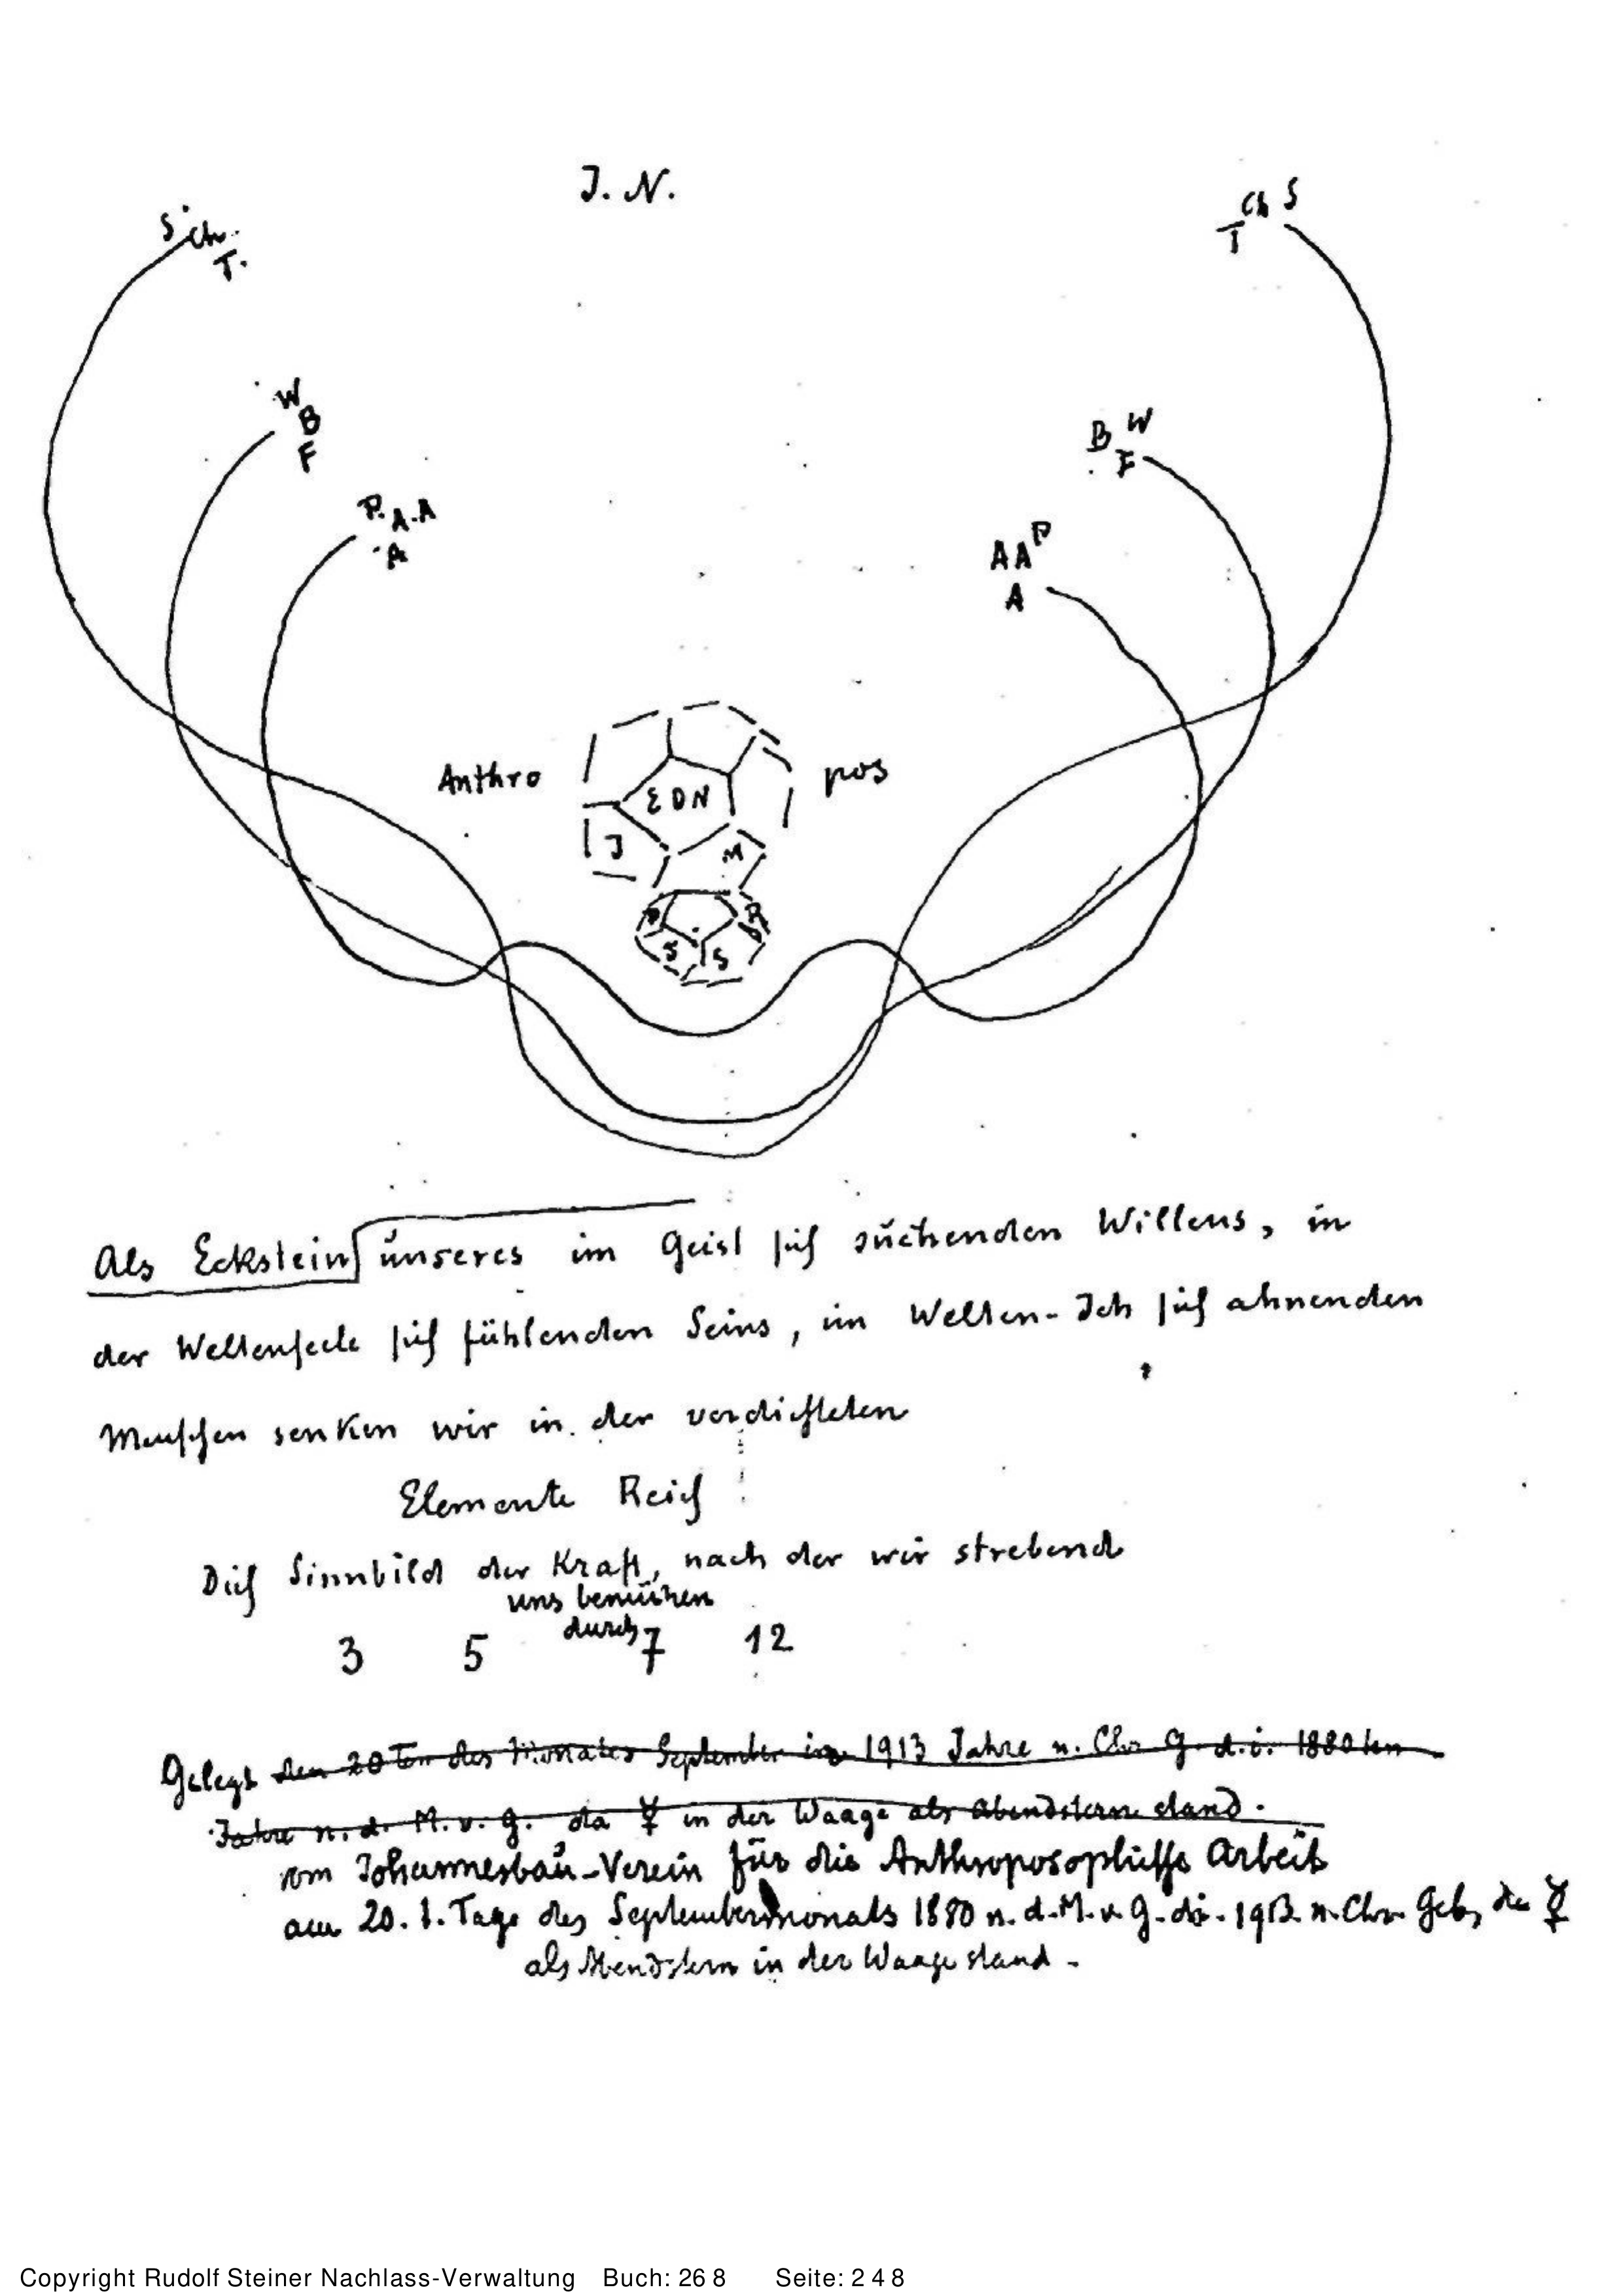 J. N.
S. Ch.
T.
Ch S
T
W
B
F
B W
F
P. A. A
A
A A P
A
Anthro
pos
E D N
J
M
R
S S
Als Eckstein unseres im Geist sich suchenden Willens, in
der Weltenseele sich fühlenden Seins, im Welten-Ich sich ahnenden
Menschen senken wir in der verdichteten
Elemente Reich
Dich Sinnbild der Kraft, nach der wir strebend
uns bemühen
durch
3 5 7 12
Gelegt den 20ten des Monates September im 1913 Jahre n. Chr G. d. i. 1880ten
Jahre n. d. M. v. G. da ☿ in der Waage als Abendstern stand.
vom Johannesbau-Verein für die Anthroposophische Arbeit
am 20. Tage des Septembermonats 1880 n. d. M. v. G. d. i. 1913 n. Chr. Geb, da ☿
als Abendstern in der Waage stand -
Copyright Rudolf Steiner Nachlass-Verwaltung Buch: 26 8 Seite: 2 4 8